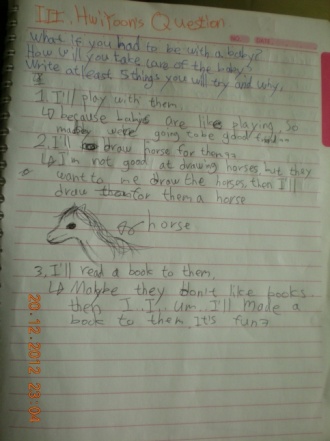 III. HwiYoon's Question
What if you had to be with a baby?
How will you take care of the baby?
Write atleast 5 things you will try and why.
1. I'll play with them.
↳ because babys are like playing, so
maybe we're going to be good
2. I'll draw horse for them??
↳ I'm not good at drawing horses, but they
want to me draw the horses, then I'll
draw for them a horse
horse
3. I'll read a book to them.
↳ Maybe they don't like books.
then I..I.. um.. I'll made a
book to them. It's fun?
20.12.2012 23:04